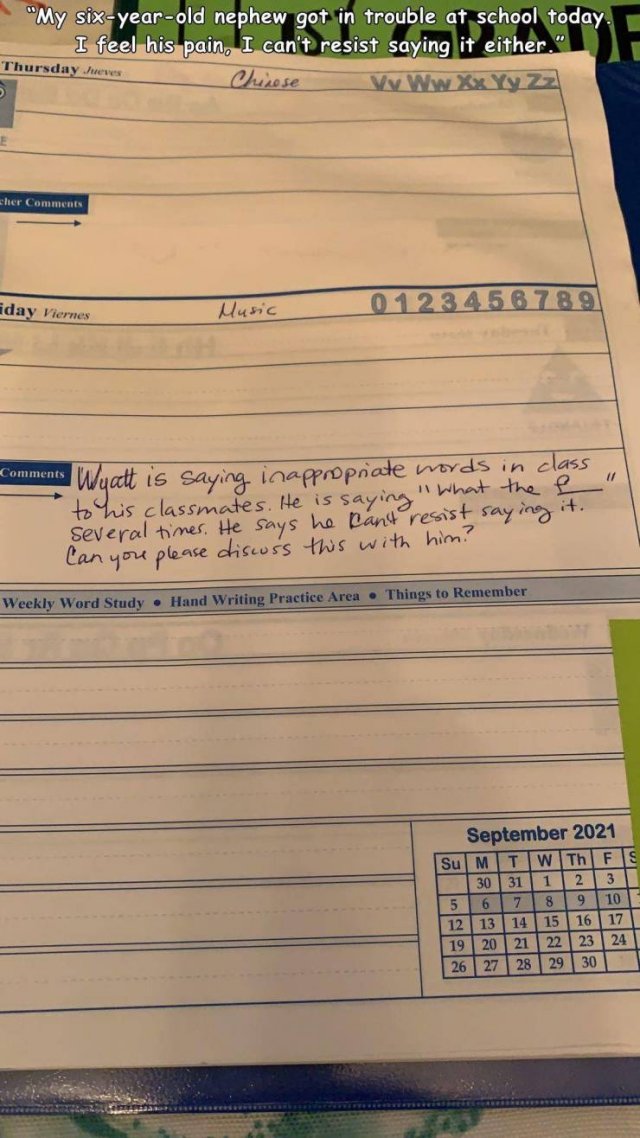 "My six-year-old nephew got in trouble at school today.
I feel his pain, I can't resist saying it either."
Thursday Jueves
Chinese
Vv Ww Xx Yy Zz
cher Comments
iday Viernes
Music
0 1 2 3 4 5 6 7 8 9
Comments
Wyatt is saying inappropriate words in class
to his classmates. He is saying "what the f__"
several times. He says he can't resist saying it.
Can you please discuss this with him?
Weekly Word Study • Hand Writing Practice Area • Things to Remember
September 2021
Su M T W Th F S
30 31 1 2 3
5 6 7 8 9 10
12 13 14 15 16 17
19 20 21 22 23 24
26 27 28 29 30